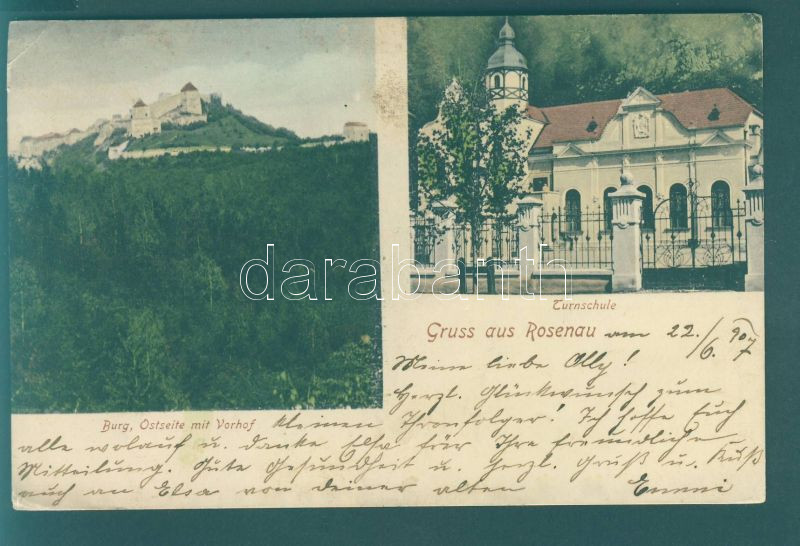 Turnschule
Gruss aus Rosenau am 22./6. 907
Meine liebe Olly!
Herzl. Glückwunsch zum
Burg, Ostseite mit Vorhof kleinen Thronfolger! Ich hoffe Euch
alle wolauf u. danke Elsa für Ihre freundliche
Mitteilung. Gute Gesundheit u. herzl. Gruß u. Kuß
auch an Elsa von deiner alten Emmi
darabanth